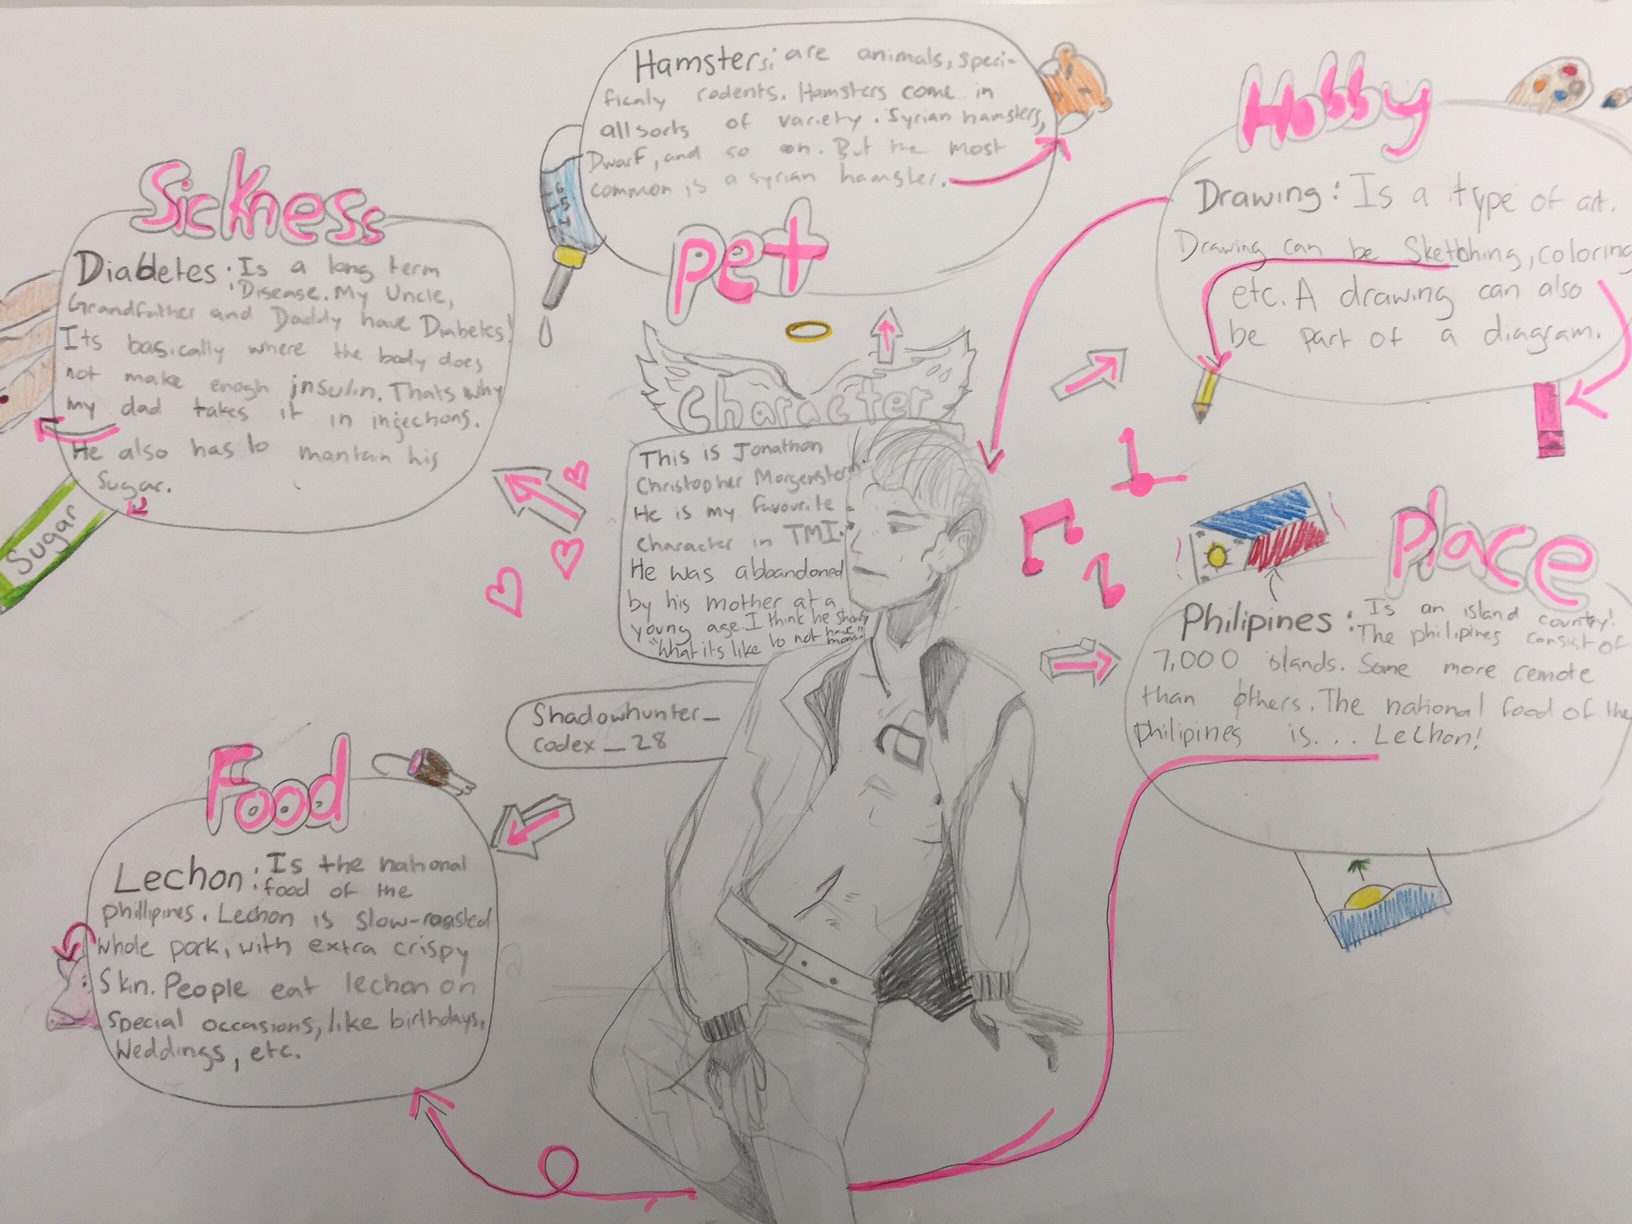 Hamsters: are animals, speci-
ficaly rodents. Hamsters come in
all sorts of variety. Syrian hamsters,
Dwarf, and so on. But the most
common is a syrian hamster.
pet
6
5
4
Sickness
Diabetes: Is a long term
Disease. My Uncle,
Grandfather and Daddy have Diabetes!
Its basically where the body does
not make enogh insulin. Thats why
my dad takes it in injections.
He also has to mantain his
Sugar.
Sugar
Hobby
Drawing: Is a type of art.
Drawing can be Sketching, coloring
etc. A drawing can also
be part of a diagram.
Character
This is Jonathan
Christopher Morgenstern.
He is my favourite
character in TMI.
He was abbandoned
by his mother at a
young age. I think he shows
"What its like to not have a mom."
Shadowhunter_
codex_28
Place
Philipines: Is an island country!
The philipines consist of
7,000 islands. Some more remote
than others. The national food of the
philipines is... Lechon!
Food
Lechon: Is the national
food of the
phillipines. Lechon is slow-roasted
whole pork, with extra crispy
Skin. People eat lechon on
special occasions, like birthdays,
Weddings, etc.